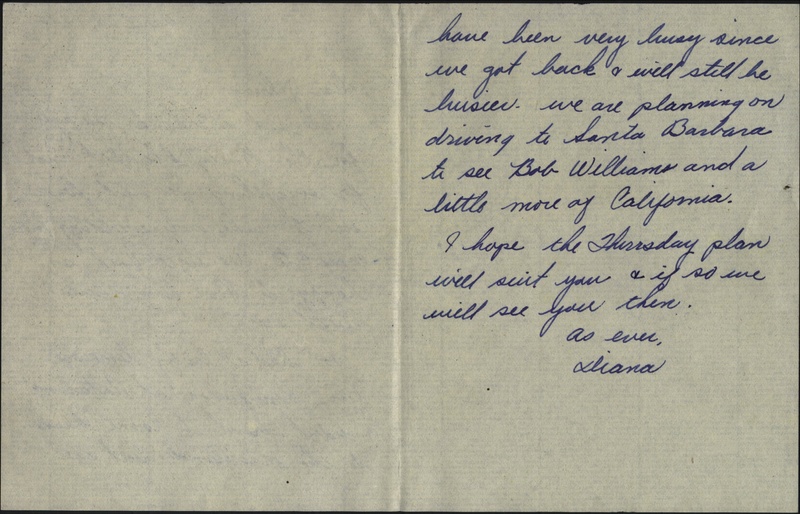 have been very busy since
we got back & will still be
busier. we are planning on
driving to Santa Barbara
to see Bob Williams and a
little more of California.
I hope the Thursday plan
will suit you & if so we
will see you then.
As ever,
Diana